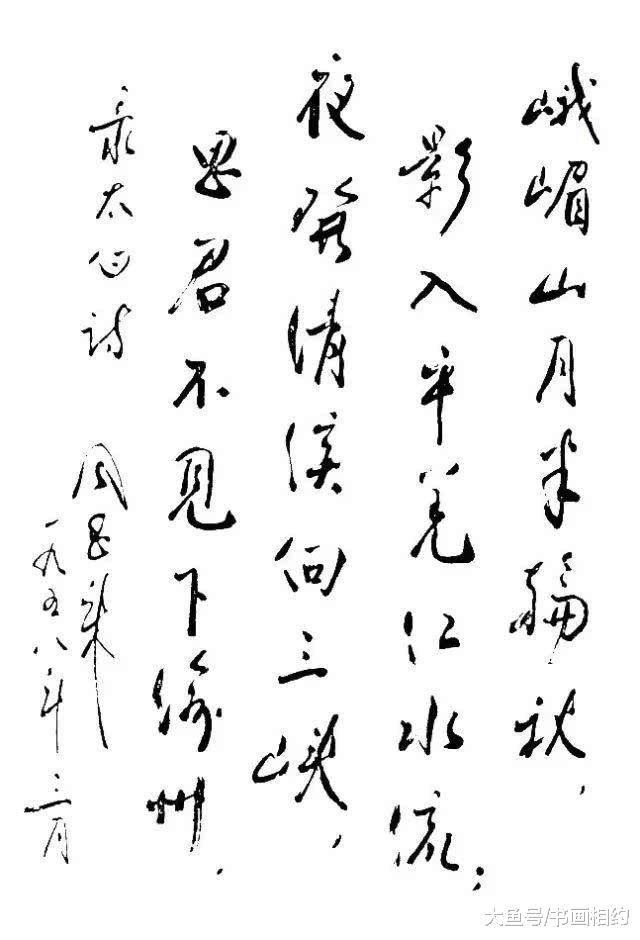 峨嵋山月半輪秋，
影入平羌江水流；
夜發清溪向三峡，
思君不見下渝州．
录太白诗
周恩来
一九五八年三月
大鱼号/书画相约